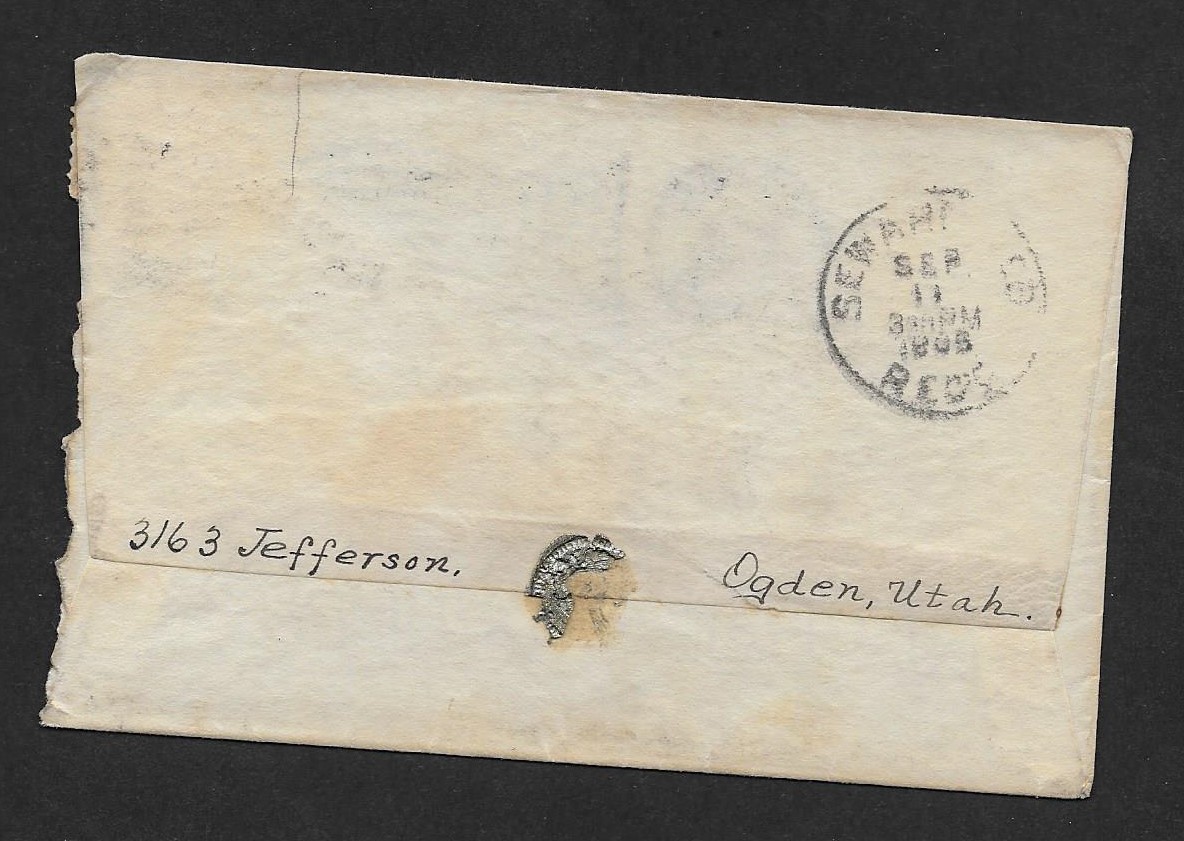 SEWARD
SEP
11
PM
REC'D
3163 Jefferson. Ogden, Utah.